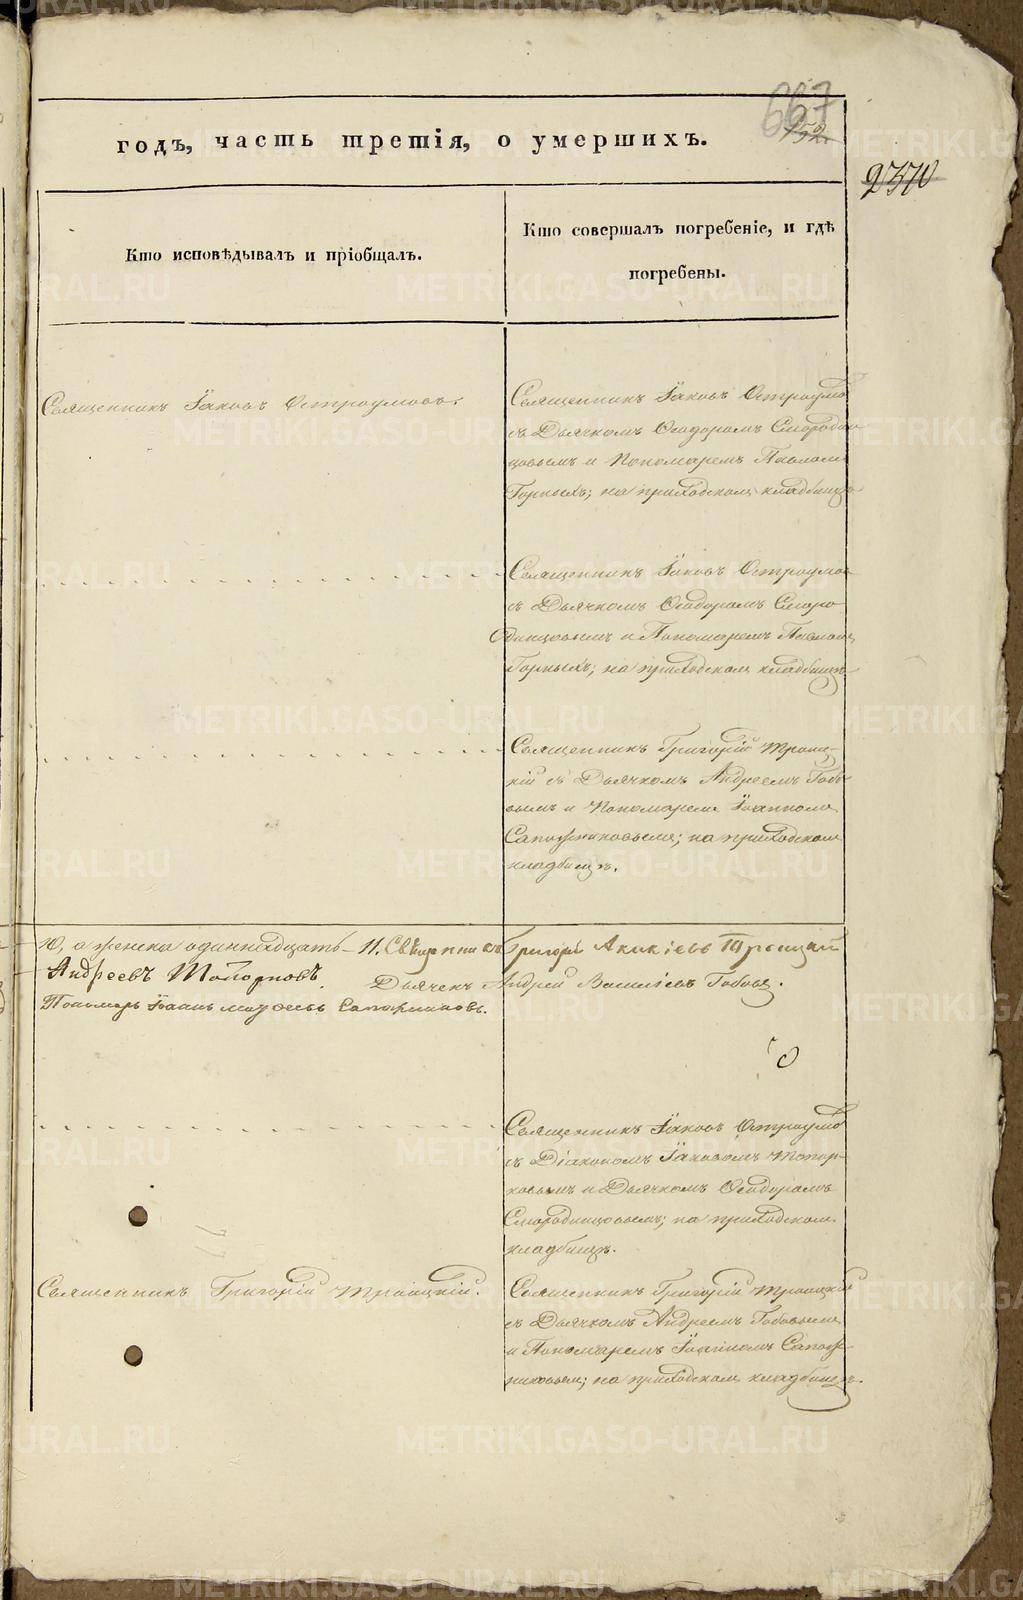 667
952
2370
годъ, часть третія, о умершихъ.
Кто исповѣдывалъ и пріобщалъ.
Кто совершалъ погребеніе, и гдѣ
погребены.
Священникъ Іаковъ Остроумовъ.
Священникъ Іаковъ Остроумо
съ Дьячкомъ Ѳеодоромъ Смородин
цовымъ и Пономаремъ Павломъ
Горныхъ; на приходскомъ кладбищѣ
Священникъ Іаковъ Остроумов
съ Дьячкомъ Ѳеодоромъ Сморо
динцовымъ и Пономаремъ Павломъ
Горныхъ; на приходскомъ кладбищѣ
Священникъ Григорій Троиц-
кій съ Дьячкомъ Андреемъ Бабо
вымъ и Пономаремъ Іоанномъ
Сапожниковымъ; на приходскомъ
кладбищѣ.
10, а женска одиннадцать 11. Священникъ Григорій Акакіевъ Троицкій
Андреевъ Топорковъ. Дьячекъ Андрей Васильевъ Бабовъ.
Пономарь Іоаннъ Сапожниковъ.
Священникъ Іаковъ Остроумо
съ Діакономъ Іаковомъ Топор-
ковымъ и Дьячкомъ Ѳеодоромъ
Смородинцовымъ; на приходскомъ
кладбищѣ.
Священникъ Григорій Троицкій.
Священникъ Григорій Троицкій
съ Дьячкомъ Андреемъ Бабовымъ
и Пономаремъ Іоанномъ Сапож-
никовым; на приходскомъ кладбищѣ.
METRIKI.GASO-URAL.RU